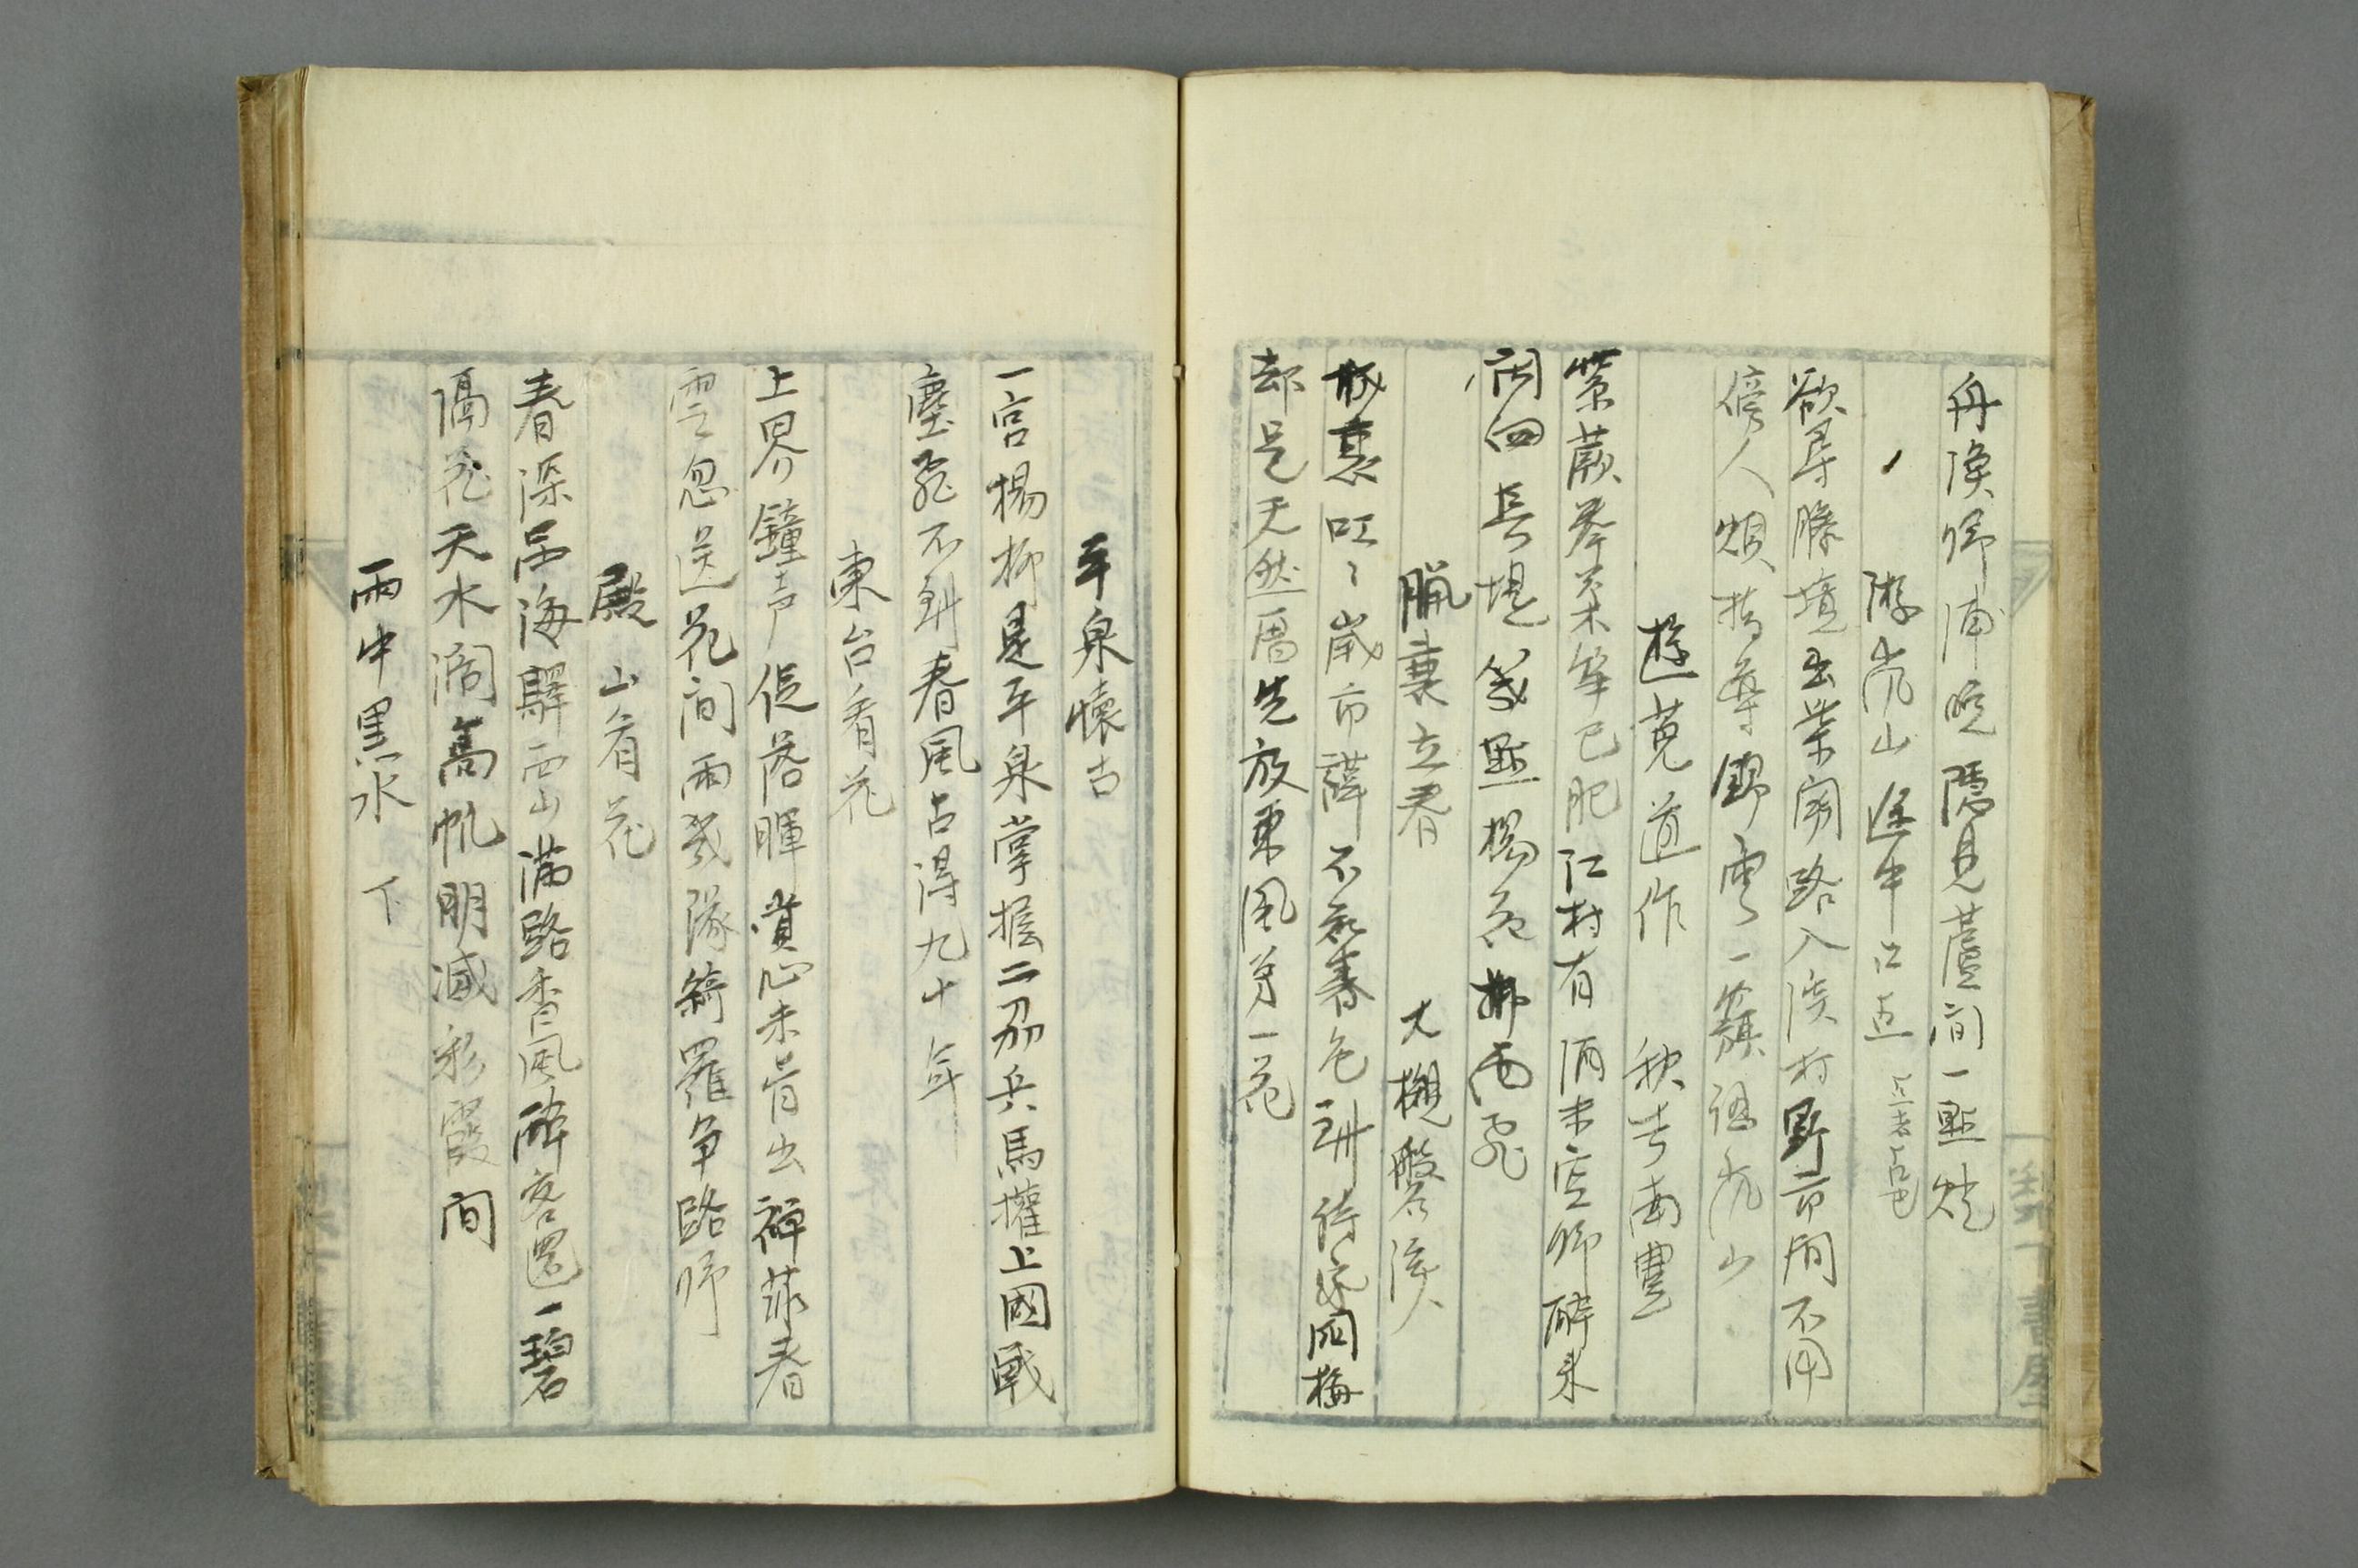 舟渙帰浦晩隠見蘆間一點灯
游嵐山途中口占
欲尋勝境出業間路入渓村野市間不用
傍人煩指導野雲一簇認嵐山
遊莵道作 秋吉南豊
紫蕨拳柔筆已肥江村有酒未空帰酔来
閑四長堤幾點楊花撲面飛
臘裏立春 大槻磐渓
城裏匹〻歳市譁不知春色到詩家園梅
却是天然暦先放東風第一花
平泉懐古
一宮楊柳是平泉掌握二刕兵馬権上国戦
塵飛不到春風占得九十年
東台看花
上界鐘声促落暉賞心未肯出禅菲春
雲忽送花間雨幾隊綺羅争路帰
殿山看花
春深品海驛西山満路香風酔客還一碧
隔花天水濶高帆明滅彩霞間
雨中黒水下